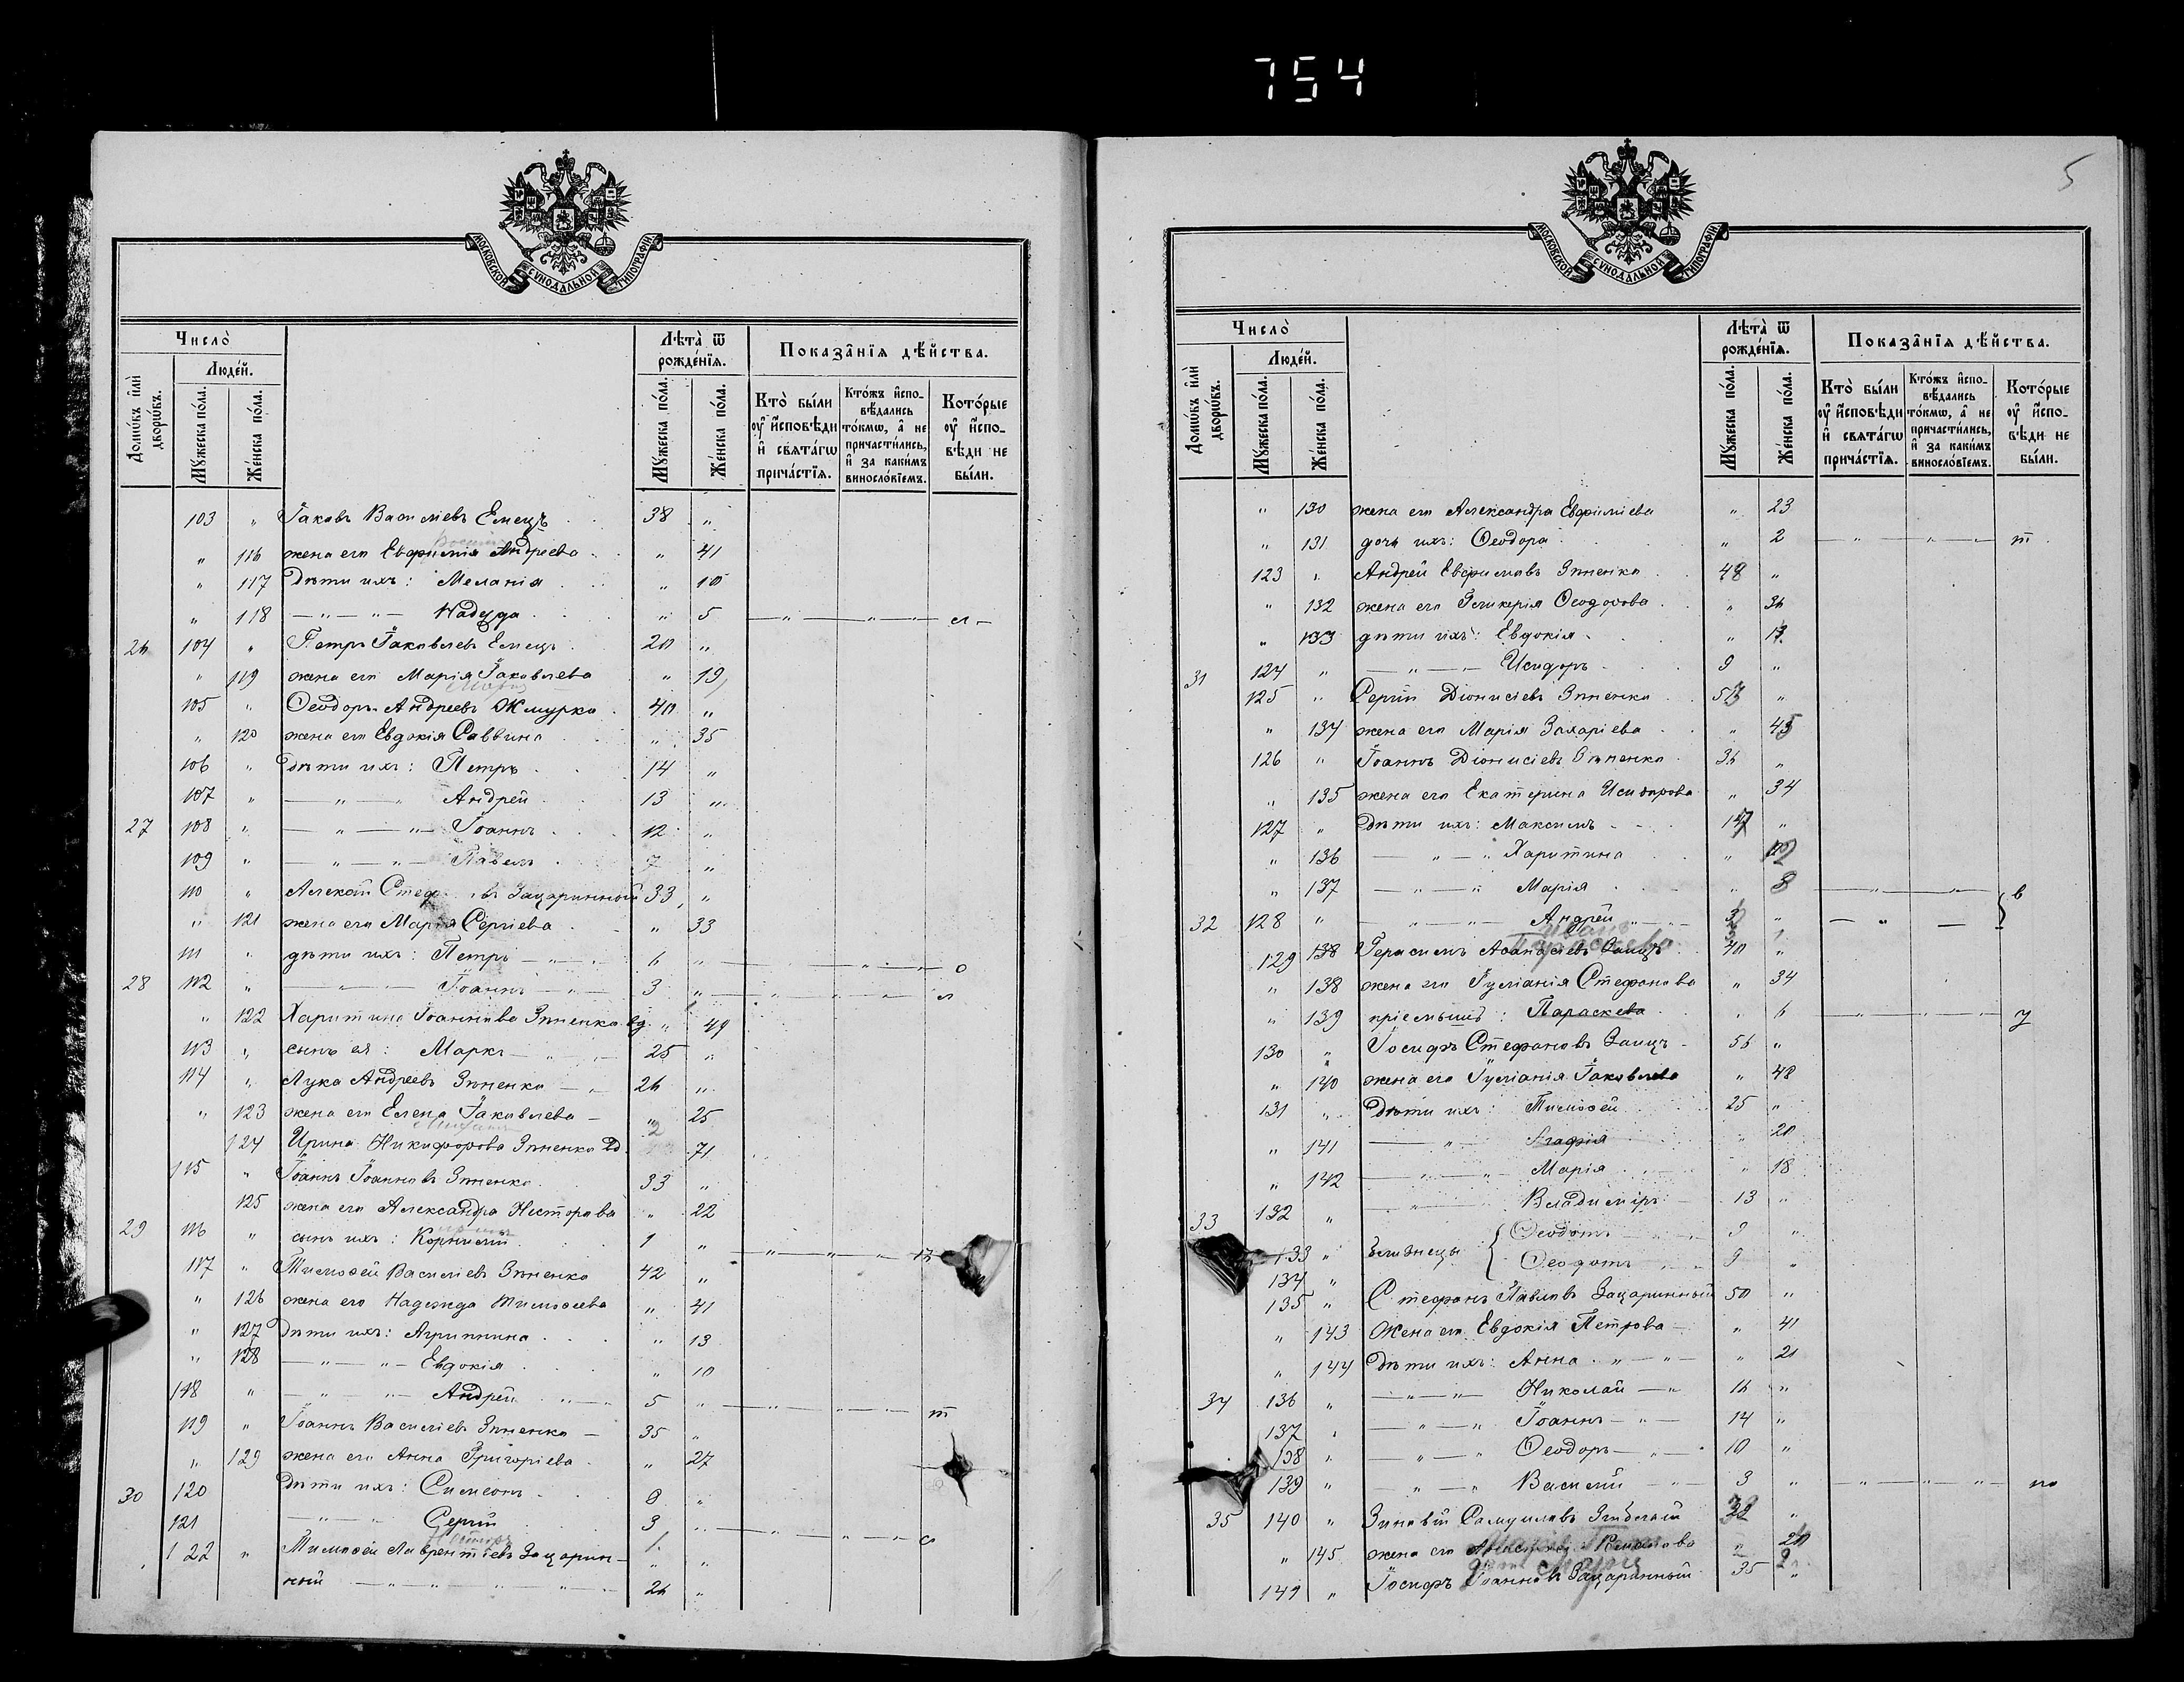 754
МОСКОВСКОЙ СѴНОДАЛЬНОЙ ТИПОГРАФІИ
Число̀
Лѣта̀ ѿ рожде́нїѧ.
Показа̂нїѧ дѣ́йства.
Домѡ́въ и҆лѝ дворѡ́въ.
Люде́й.
Мꙋ́жеска по́ла.
Же́нска по́ла.
Мꙋ́жеска по́ла.
Же́нска по́ла.
Кто̀ бы́ли ᲂу҆ и҆сповѣ́ди и҆ свѧта́гѡ прича́стїѧ.
Кто́жъ и҆спо-вѣ́дались то́кмѡ, а҆ не причасти́лись, и҆ за каки́мъ винослові́емъ.
Кото́рые ᲂу҆ и҆спо-вѣ́ди не бы́ли.
103 " Іаковъ Василіевъ Емецъ 38 "
" 116 жена его Евфимія Андреева " 41
" 117 Дѣти ихъ: Меланія " 10
" 118 — " — " — Надежда " 5
26 104 " Петръ Іаковлевъ Емецъ 20 "
" 119 жена его Марія Іаковлева " 19
105 " Ѳеодоръ Андреевъ Жмурко 40 "
" 120 жена его Евдокія Саввина " 35
106 " Дѣти ихъ: Петръ 14 "
107 " — " — " Андрей 13 "
27 108 " — " — " — Іоаннъ 12 "
109 " — " — " — Павелъ 7 "
110 " Алексѣй Зацаринный 33 "
" 121 жена его Марія Сергіева " 33
111 " дѣти ихъ: Петръ — " — 6 "
28 112 " Іоаннъ — " — 3 "
" 122 Харитина Іоаннова Зѣненко вд. " 49
113 " сынъ ея: Маркъ — " — 25 "
114 " Лука Андреевъ Зѣненко — 26 "
" 123 жена его Елена Іаковлева — " 25
124 Ирина Никифорова Зѣненко 71
115 " Іоаннъ Іоанновъ Зѣненко 33 "
125 жена его Александра Несторова " 22
29 116 " сынъ ихъ: Корнилій 1 "
117 " Тимоѳей Василіевъ Зѣненко 42 "
" 126 жена его Надежда Тимоѳеева " 41
" 127 Дѣти ихъ: Агриппина " 13
" 128 — " — " — Евдокія " 10
118 " — " — " — Андрей 5 " т
119 " Іоаннъ Василіевъ Зѣненко — 35 "
" 129 жена его Анна Григоріева " 27
30 120 Дѣти ихъ: Симеонъ 8 "
121 — " — Сергій 3 "
122 " Тимоѳей Лаврентіевъ Зацарин-
ный — " — " — 26 "
5
МОСКОВСКОЙ СѴНОДАЛЬНОЙ ТИПОГРАФІИ
Число̀
Лѣта̀ ѿ рожде́нїѧ.
Показа̂нїѧ дѣ́йства.
Домѡ́въ и҆лѝ дворѡ́въ.
Люде́й.
Мꙋ́жеска по́ла.
Же́нска по́ла.
Мꙋ́жеска по́ла.
Же́нска по́ла.
Кто̀ бы́ли ᲂу҆ и҆сповѣ́ди и҆ свѧта́гѡ прича́стїѧ.
Кто́жъ и҆спо-вѣ́дались то́кмѡ, а҆ не причасти́лись, и҆ за каки́мъ винослові́емъ.
Кото́рые ᲂу҆ и҆спо-вѣ́ди не бы́ли.
" 130 жена его Александра Евфиміева " 23
" 131 дочь ихъ: Ѳеодора " 2 — " — " — т
123 " Андрей Евфимовъ Зѣненко 48 "
" 132 жена его Гликерія Ѳеодорова " 36
" 133 дѣти ихъ: Евдокія " 13
31 124 " — " — " — Исидоръ 9 "
125 " Сергій Діонисіевъ Зѣненко 53 "
" 134 жена его Марія Захаріева " 45
126 " Іоаннъ Діонисіевъ Зѣненко 36 "
" 135 жена его Екатерина Исидорова " 34
127 " Дѣти ихъ: Максимъ 17 "
" 136 — " — " Харитина " 12
" 137 — " — " Марія " 8
32 128 " — " — " — Андрей 3 " в
129 138 Герасимъ Аѳанасіевъ 40 "
" 138 жена его Іуліанія Стефанова " 34
" 139 пріемышъ: Параскева " 6 — " — у
130 " Іосифъ Стефановъ Заицъ 56 "
" 140 жена его Іуліанія Іаковлева " 48
131 " Дѣти ихъ: Тимоѳей 25 "
" 141 — " — Агафія " 20
" 142 — " — " Марія " 18
33 132 " — " — Владиміръ 13 "
133 " близнецы { Ѳеодотъ 9 "
134 " Ѳеодотъ 9 "
135 " Стефанъ Павловъ Зацаринный 50 "
" 143 Жена его Евдокія Петрова " 41
" 144 Дѣти ихъ: Анна " 21
34 136 " — " — " Николай — " 16 "
137 " — " — " Іоаннъ — " — 14 "
138 " — " — " Ѳеодоръ — " 10 "
139 " — " — " Василій — " 3 "
35 140 " Зиновій Самуиловъ 32 "
" 145 жена его " 20
141 " Іосифъ Іоанновъ Зацаринный 35 "